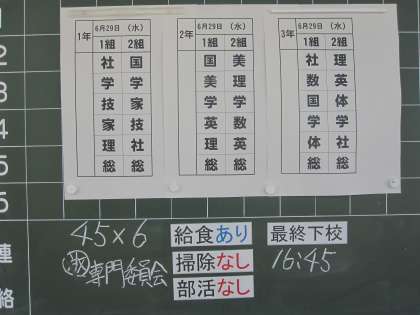 1年 6月29日 (水)
1組 2組
社 国
学 学
技 家
家 技
理 社
総 総
2年 6月29日 (水)
1組 2組
国 美
美 理
学 学
英 数
理 英
総 総
3年 6月29日 (水)
1組 2組
社 理
数 英
国 体
学 学
体 社
総 総
2
3
4
5
5
連
絡
45×6
専門委員会
給食あり
掃除なし
部活なし
最終下校
16:45